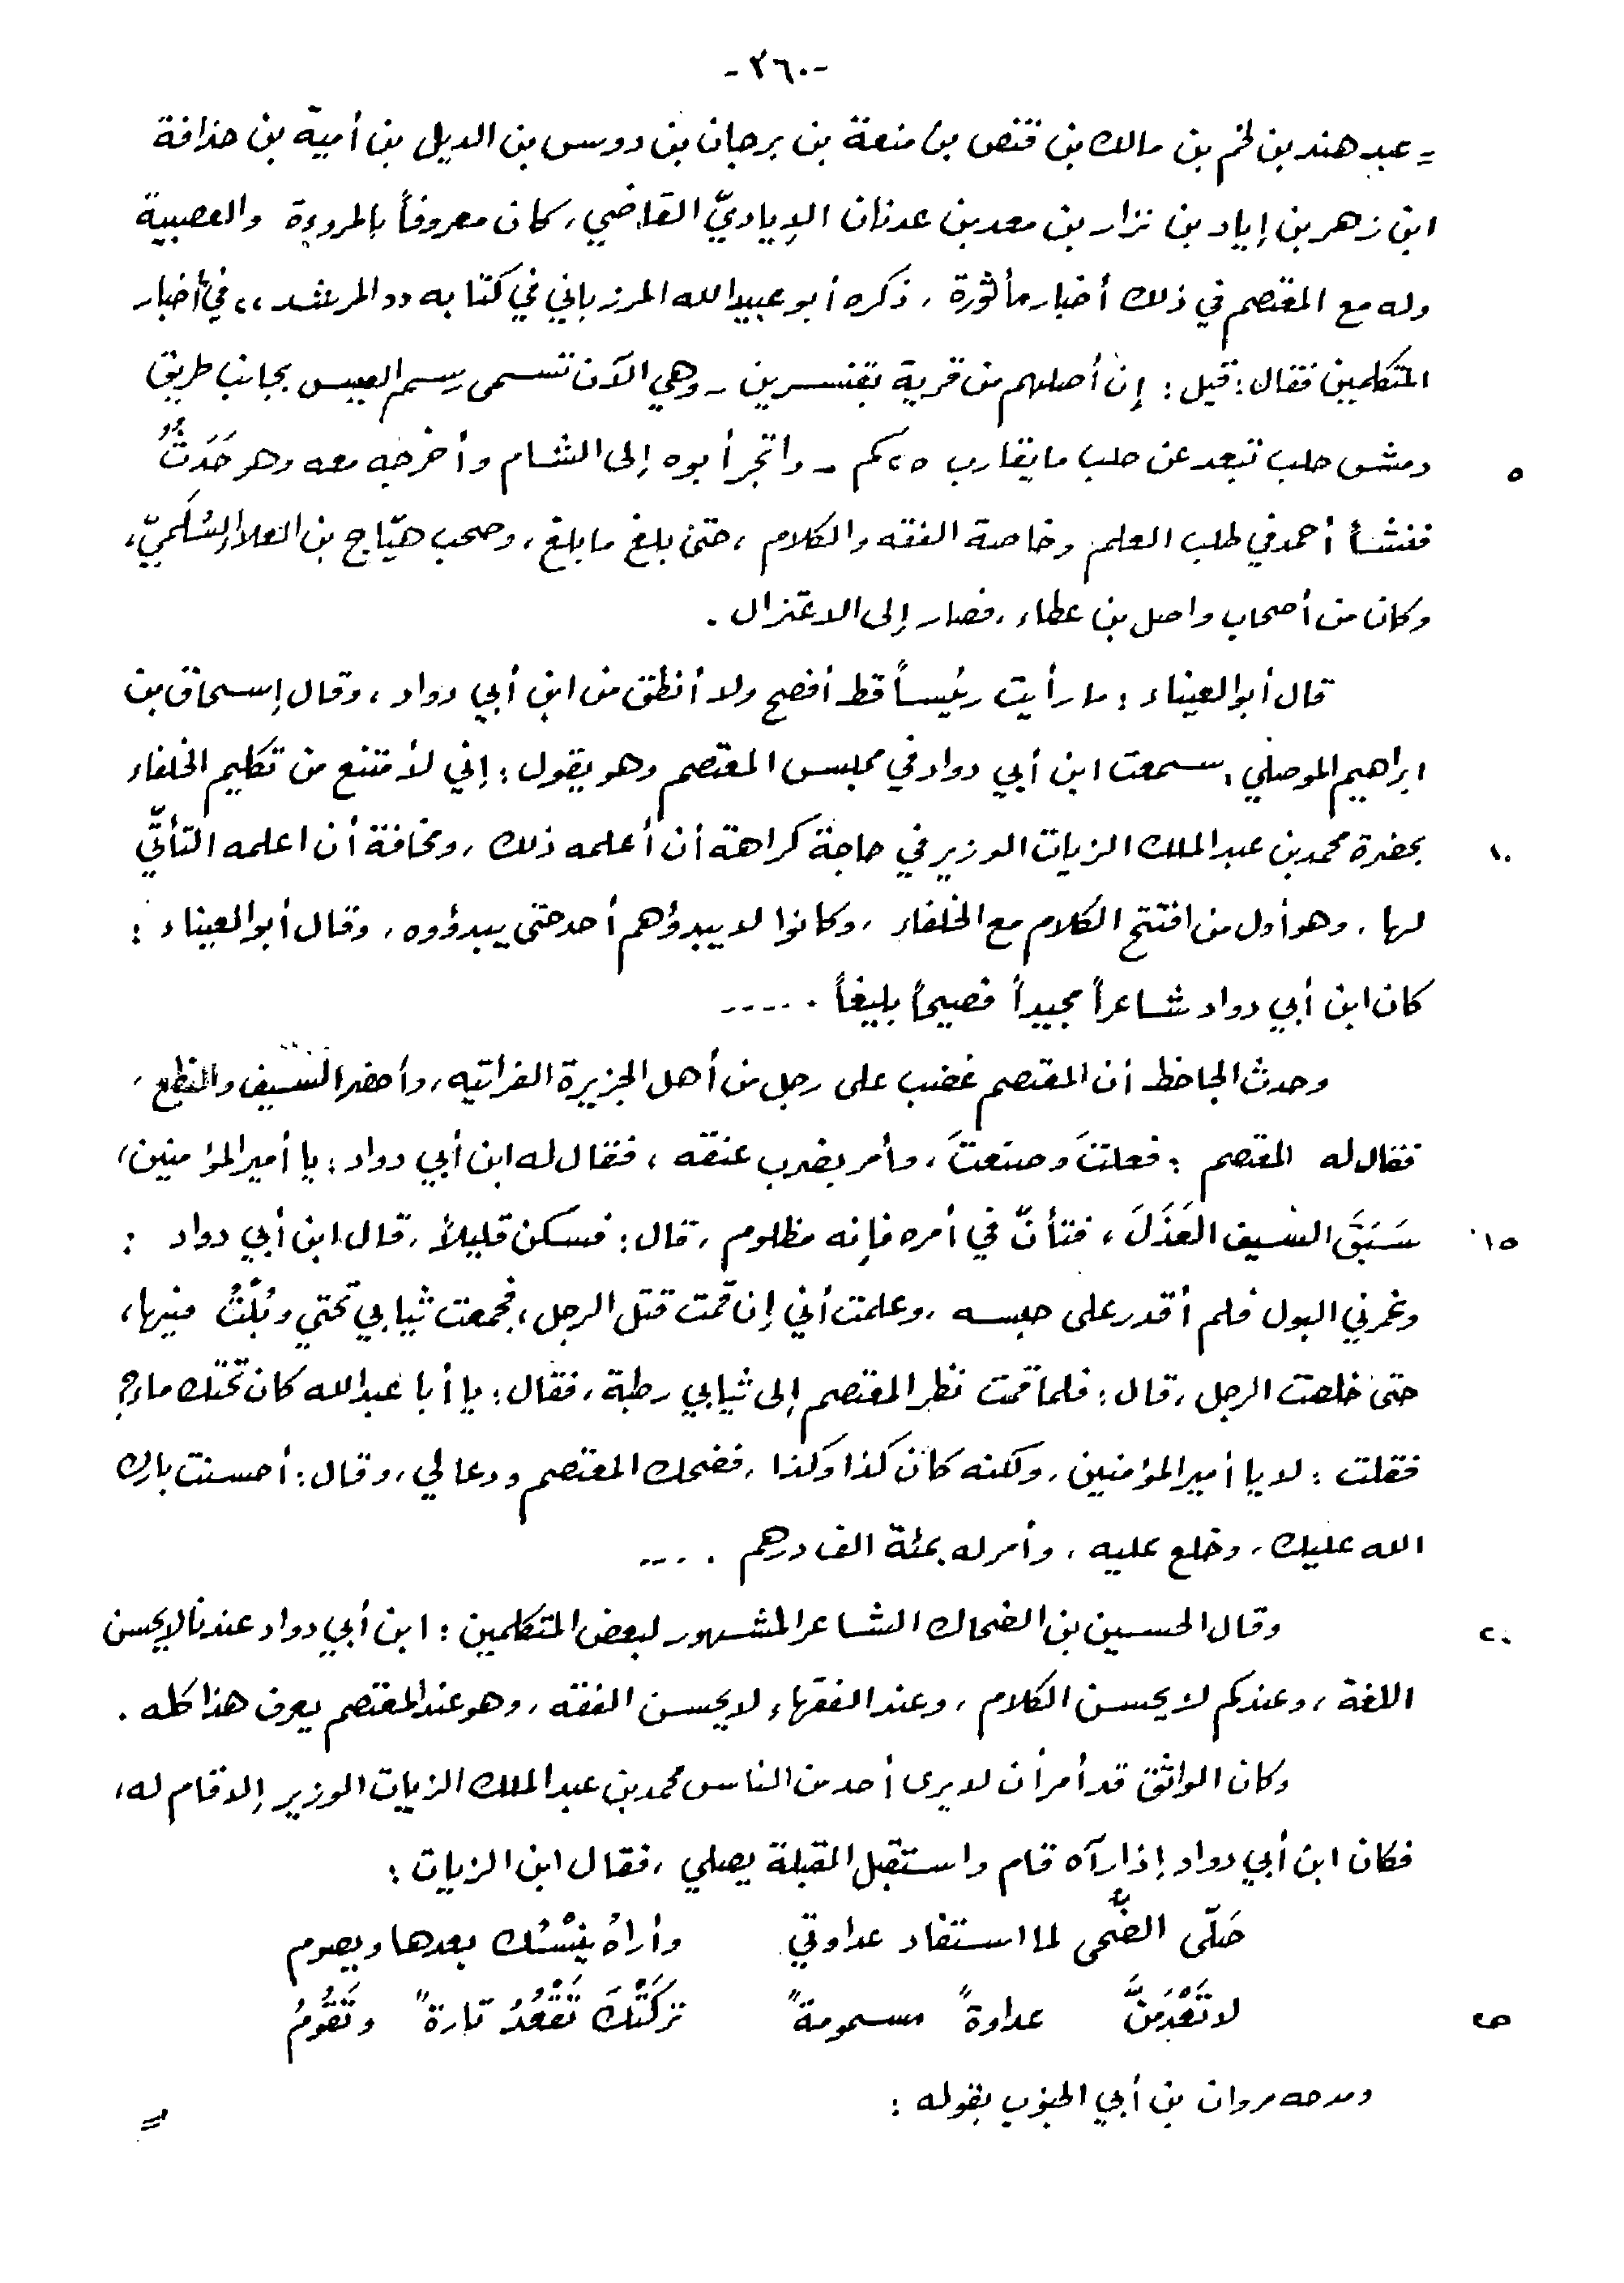 -٣٦٠-
= عبد هند بن لخم بن مالك بن قنص بن منعة بن برجان بن دوس بن الديل بن أمية بن حذافة
ابن زهر بن إياد بن نزار بن معد بن عدنان الإياديّ القاضي، كان معروفاً بالمروءة والعصبية
وله مع المعتصم في ذلك أخبار مأثورة، ذكره أبو عبيد الله المرزباني في كتابه "المرشد" في أخبار
المتكلمين فقال: قيل: إن أصلهم من قرية بقنسرين - وهي الآن تسمى رسم العيس بجانب طريق
دمشق حلب تبعد عن حلب ما يقارب ٢٥ كم - واتجر أبوه إلى الشام وأخرجه معه وهو حَدَثٌ
٥
فنشأ أحمد في طلب العلم وخاصة الفقه والكلام، حتى بلغ ما بلغ، وصحب هيّاج بن العلاء السُلَميّ،
وكان من أصحاب واصل بن عطاء، فصار إلى الاعتزال.
قال أبو العيناء: ما رأيت رئيساً قط أفصح ولا أنطق من ابن أبي دواد، وقال إسحاق بن
ابراهيم الموصلي: سمعت ابن أبي دواد في مجلس المعتصم وهو يقول: إني لأمتنع من تكليم الخلفاء
بحضرة محمد بن عبد الملك الزيات الوزير في حاجة كراهة أن أعلمه ذلك، ومخافة أن اعلمه التأتّي
١٠
لها، وهو أول من افتتح الكلام مع الخلفاء، وكانوا لا يبدؤهم أحد حتى يبدؤوه، وقال أبو العيناء:
كان ابن أبي دواد شاعراً مجيداً فصيحاً بليغاً .....
وحدث الجاحظ أن المعتصم غضب على رجل من أهل الجزيرة الفراتيه، وأحضر السيف والنطع،
فقال له المعتصم: فعلتَ وصنعتَ، وأمر بضرب عنقه، فقال له ابن أبي دواد: يا أمير المؤمنين،
سَبَقَ السيف العَذَلَ، فتأنّ في أمره فإنه مظلوم، قال: فسكن قليلاً، قال ابن أبي دواد:
١٥
وغمرني البول فلم أقدر على حبسه، وعلمت أني إن قمت قتل الرجل، فجمعت ثيابي تحتي وبُلْتُ فيها،
حتى خلصت الرجل، قال: فلما قمت نظر المعتصم إلى ثيابي رطبة، فقال: يا أبا عبد الله كان تحتك ماء؟
فقلت: لا يا أمير المؤمنين، ولكنه كان كذا وكذا، فضحك المعتصم ودعا لي، وقال: أحسنت بارك
الله عليك، وخلع عليه، وأمر له بمئة الف درهم .....
وقال الحسين بن الضحاك الشاعر المشهور لبعض المتكلمين: ابن أبي دواد عندنا لايحسن
٢٠
اللغة، وعندكم لا يحسن الكلام، وعند الفقهاء لا يحسن الفقه، وهو عند المعتصم يعرف هذا كله.
وكان الواثق قد أمر أن لا يرى أحد من الناس محمد بن عبد الملك الزيات الوزير إلا قام له،
فكان ابن أبي دواد إذا رآه قام واستقبل القبلة يصلي، فقال ابن الزيات:
صَلّى الضُّحى لما استفاد عداوتي وأراهُ ينْسُك بعدها ويصوم
لا تَعْدَمَنَّ عداوةً مسمومةً تركَتْكَ تَقْعُدُ تارةً وتَقُومُ
٢٥
ومدحه مروان بن أبي الجنوب بقوله:
=